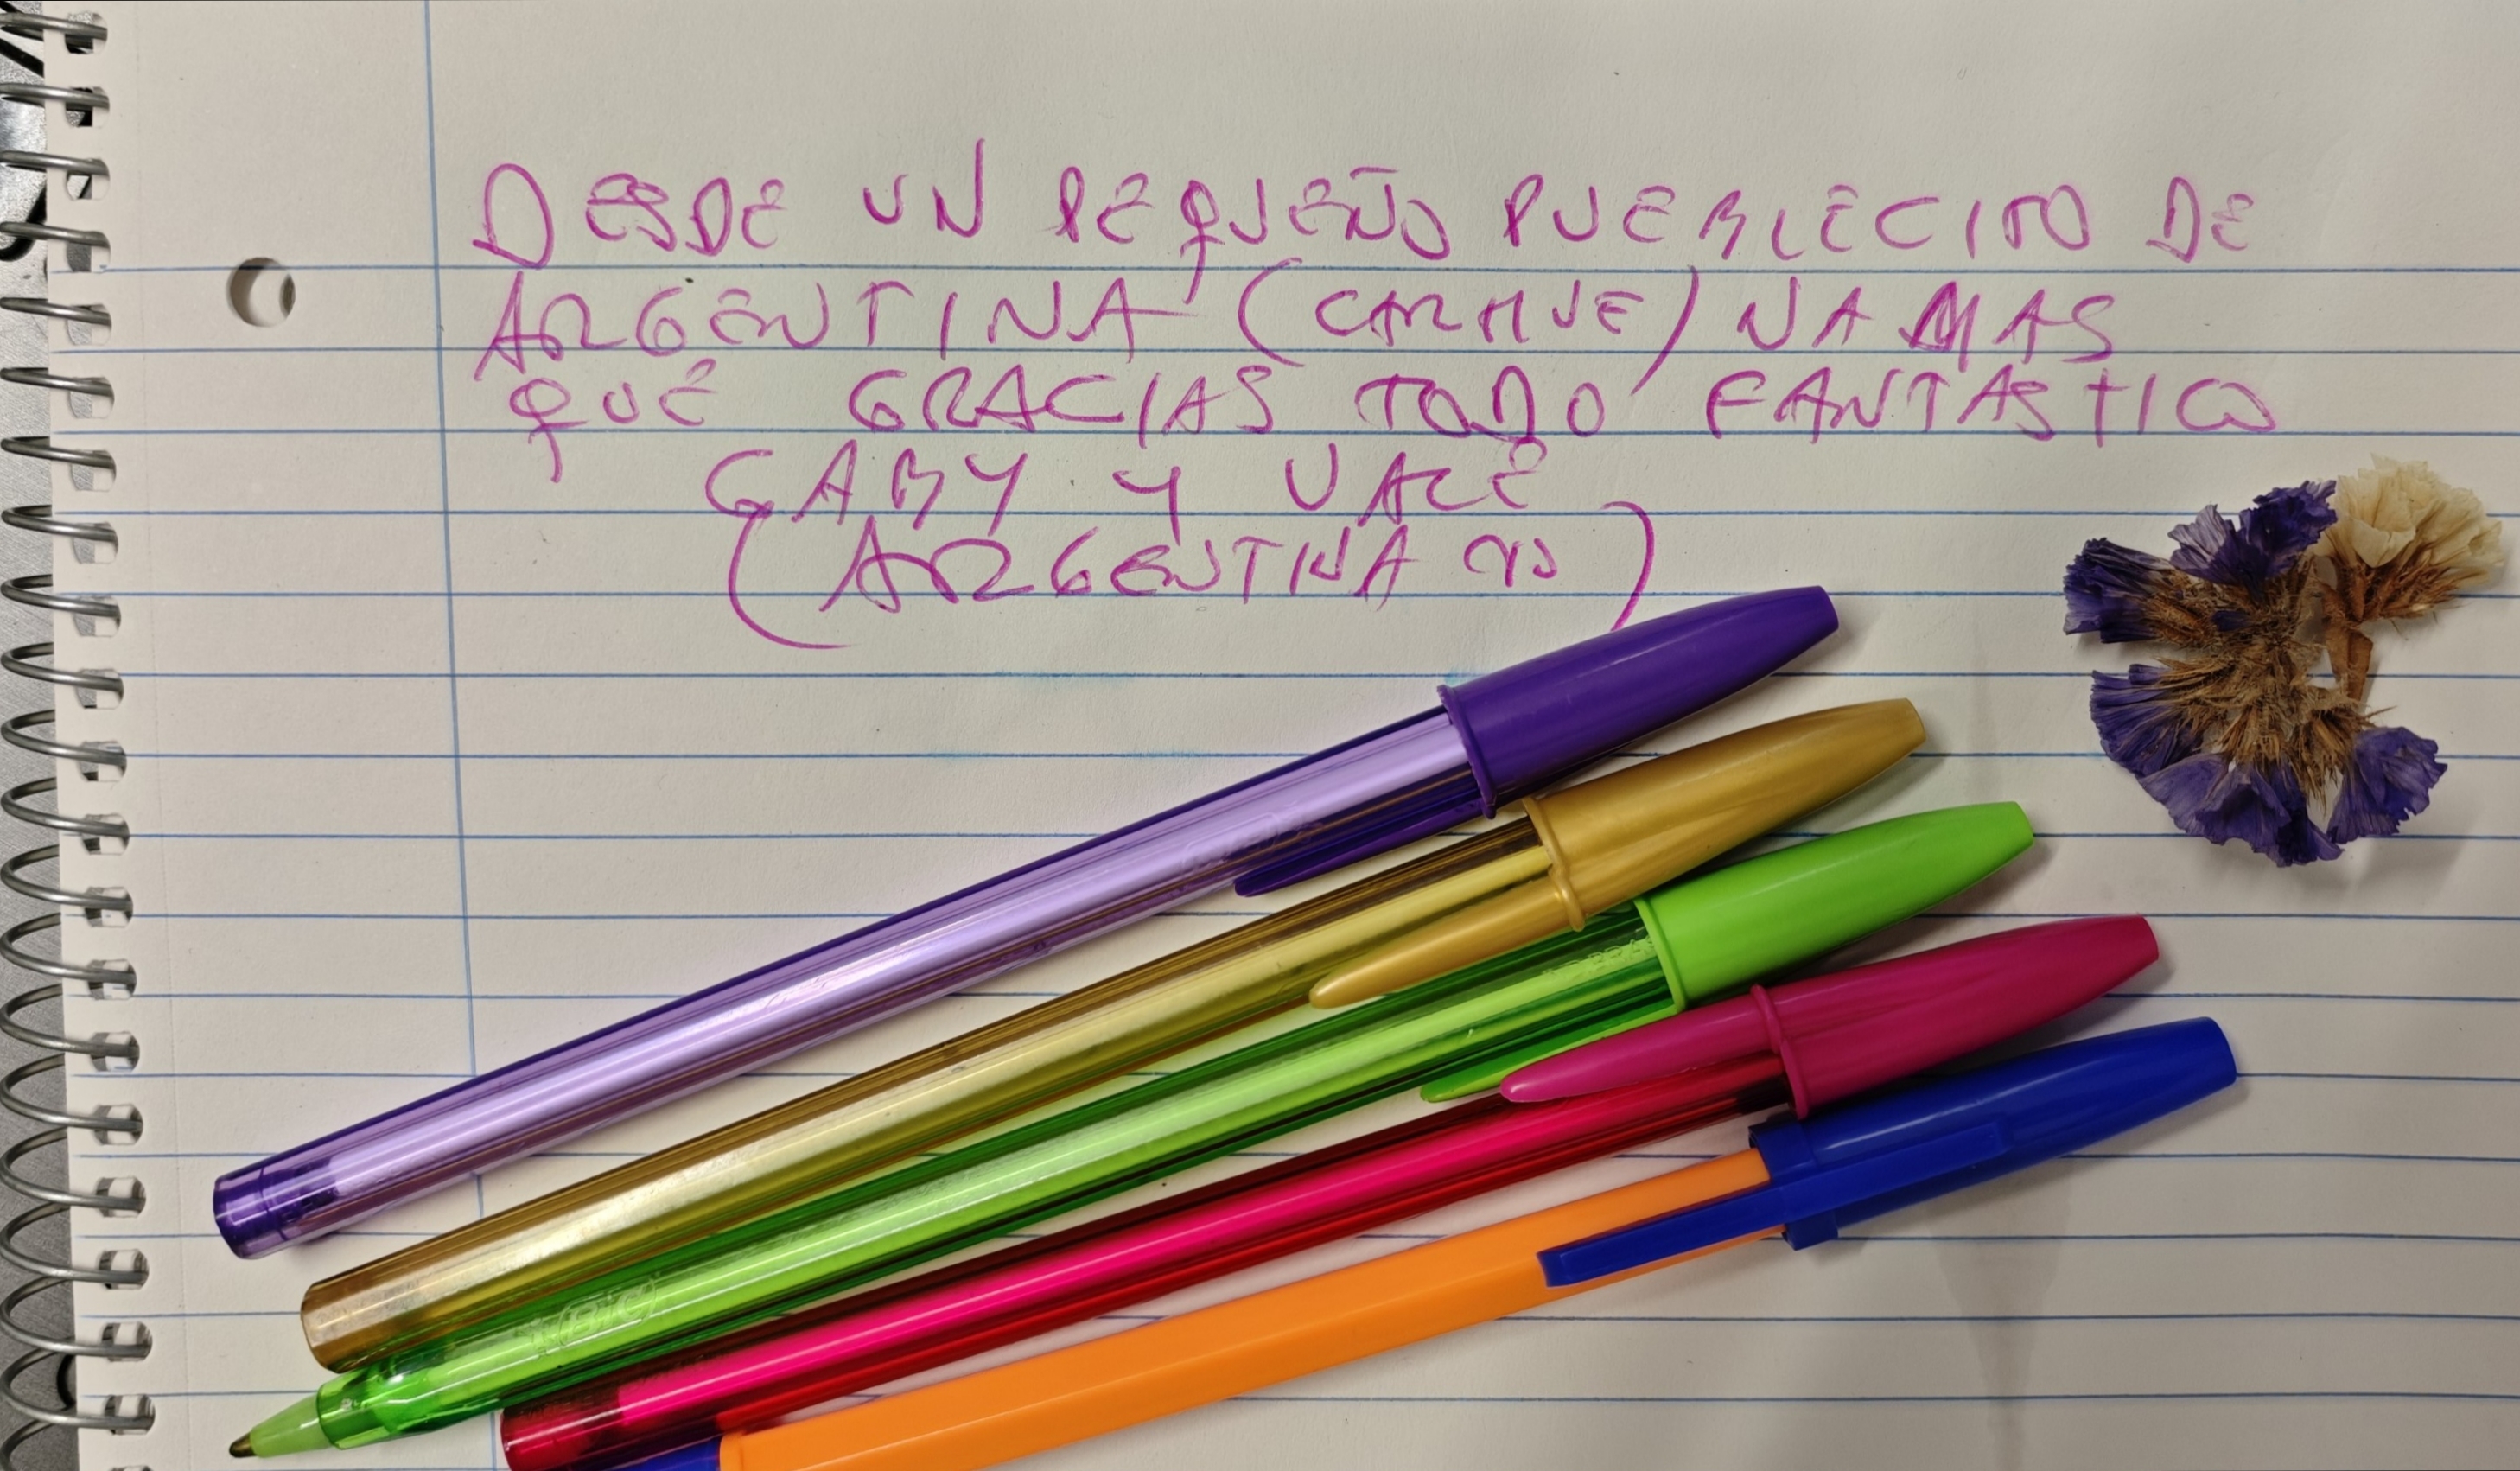 DESDE UN PEQUEÑO PUEBLECITO DE
ARGENTINA (CARHUE) NA MAS
QUE GRACIAS TODO FANTASTICO
GABY Y VALE
(ARGENTINA)
BIC